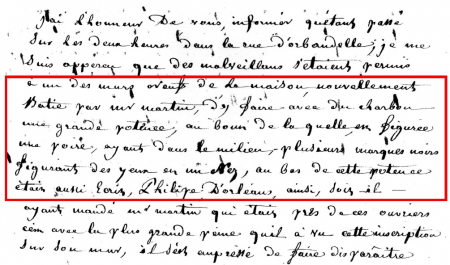 j'ai l'honneur De vous, informér quétant passé
sur les deux heures dans la rue d'orbandelle; je me
suis apperçu que des malveillans s'étaient permis
à un des murs de la maison, nouvellement
Batie par mr martin, d'y faire avec du charbon
une grande potence, au bout de la quelle en figuree
une poire, ayant dans le milieu plusieurs marques noirs
figurant des yeux en un Néz, au bas de cette potence
était aussi Ecris, Philipe D'orleau, ainsi, sois-il —
ayant mandé mr martin qui était près de ces ouvriers
cém avec la plus grande peine quil à vu cette inscription
sur son mur, il s'ést empressé de faire disparaître